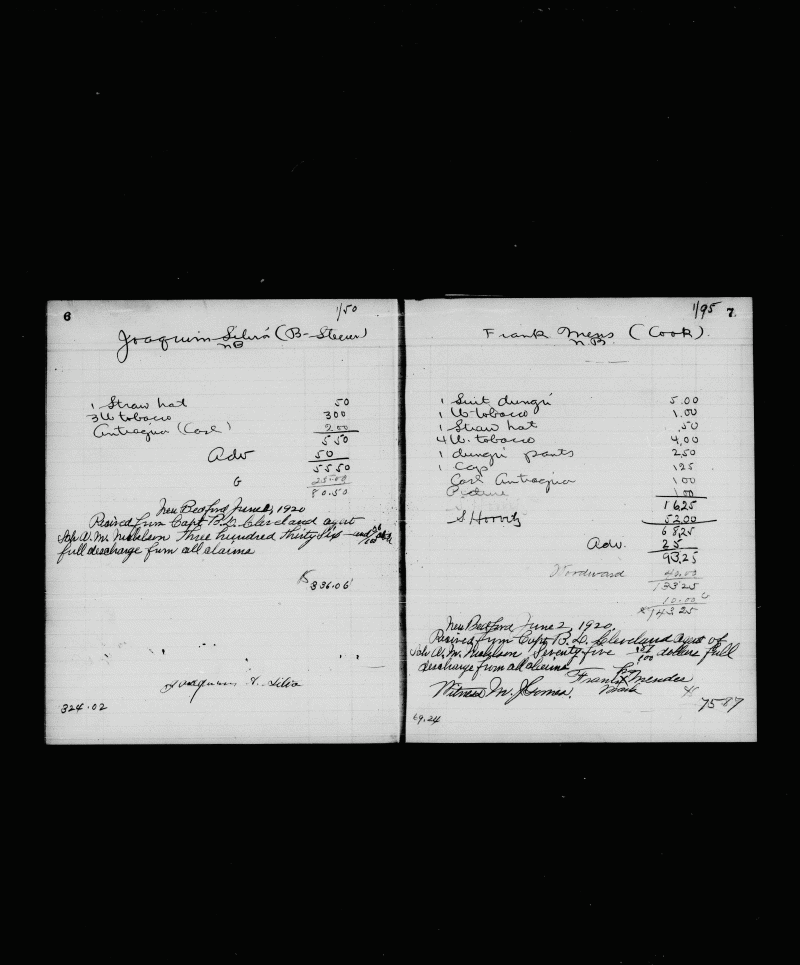 6
1/50
Joaquin Silva (B-Steerer)
NB
1 Straw hat 50
3 lb tobacco 300
(Case) 200
550
Adv 50
5550
G 25.00
80.50
New Bedford June 2, 1920
Recived from Capt B.D. Cleveland agent
Sch A.M. Nicholson Three hundred thirty six and
full descharge from all claims
$336.06
Joaquin A. Silva
324.02
1/95 7.
Frank Mens (Cook).
N.B.
1 Suit dungri 5.00
1 lb tobacco 1.00
1 Straw hat .50
4 lb. tobacco 4.00
1 dungri pants 250
1 Cap 125
Case 100
100
1625
S Horvitz 52.00
6825
Adv. 25
93.25
Woodward 40.00
133.25
10.00 G
143.25
New Bedford June 2, 1920.
Recived from Capt. B.D. Cleveland agent of
Sch A.M. Nicholson Seventy five dollars full
descharge from all claims
Frank X Mendes
Witness M. J. Gomes. Mark
7587
69.24